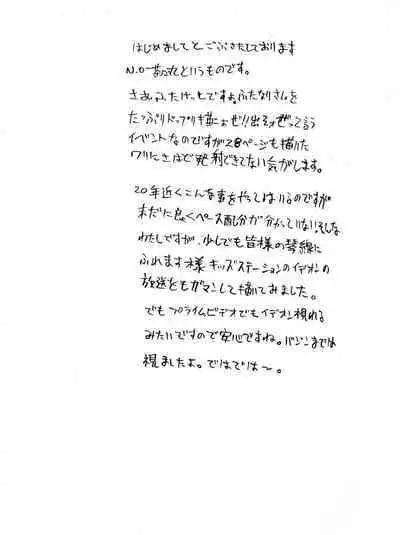 はじめましてとごぶさたしております
N.O-勃丸というものです。
さぁ、ふたけっとですょ。ふたなりさんを
たっぷりドップリ描こぉぜ!!出そぉぜって言う
イベントなのですが28ページも描いた
ワリにさほど発射できてない気がします。
20年近くこんな事をやってはいるのですが
未だに良くペース配分が分かっていない!そんな
わたしですが、少しでも皆様の琴線に
ふれます様キッズステーションのイデオンの
放送をもガマンして描てみました。
でもプライムビデオでもイデオン視れる
みたいですので安心ですね。バジンまでは
視ましたよ。ではでは〜。